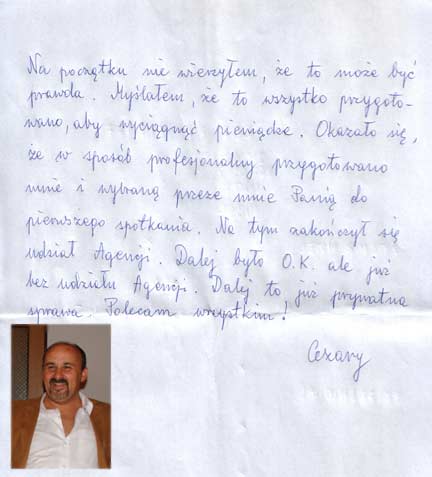 Na początku nie wierzyłem, że to może być
prawda. Myślałem, że to wszystko przygoto-
wano, aby wyciągnąć pieniądze. Okazało się,
że w sposób profesjonalny przygotowano
mnie i wybraną przeze mnie Panią do
pierwszego spotkania. Na tym zakończył się
udział Agencji. Dalej było O.K. ale już
bez udziału Agencji. Dalej to, już prywatna
sprawa. Polecam wszystkim!
Cezary